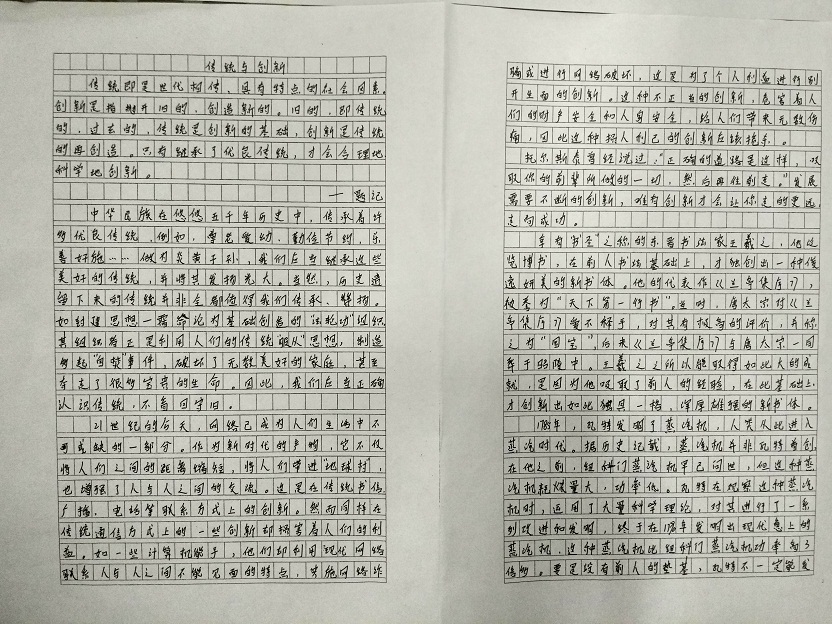 传统与创新
传统即是世代相传、具有特点的社会因素。
创新是指抛开旧的，创造新的。旧的，即传统
的，过去的，传统是创新的基础，创新是传统
的再创造。只有继承了优良传统，才会合理地
科学地创新。
—题记
中华民族在悠悠五千年历史中，传承着许
多优良传统，例如，尊老爱幼、勤俭节约、乐
善好施……做为炎黄子孙，我们应当继承这些
美好的传统，并将其发扬光大。当然，历史遗
留下来的传统并非全都值得我们传承、释扬。
如封建思想—宿命论为基础创造的“法轮功”组织
其组织者正是利用人们的传统“服从”思想，制造
多起“自焚”事件，破坏了无数美好的家庭，甚至
夺走了很多宝贵的生命。因此，我们应当正确
认识传统，不盲目守旧。
21世纪的今天，网络已成为人们生活中不
可或缺的一部分。作为新时代的产物，它不仅
将人们之间的距离缩短，将人们带进“地球村”，
也增强了人与人之间的交流。这是在传统书信
广播、电话等联系方式上的创新。然而同样在
传统通信方式上的一些创新却损害着人们的利
益，如一些计算机能手，他们却利用现代网络
联系人与人之间不能见面的特点，实施网络诈
骗或进行网络破坏，这是为了个人利益进行别
开生面的创新。这种不正当的创新，危害着人
们的财产安全和人身安全，给人们带来无数伤
痛，因此这种损人利己的创新应该摒弃。
托尔斯泰曾经说过：“正确的道路是这样，吸
取你的前辈所做的一切，然后再往前走。”发展
需要不断的创新，唯有创新才会让你走的更远，
走向成功。
享有“书圣”之称的东晋书法家王羲之，他遍
览博书，在前人书法基础上，才独创出一种俊
逸妍美的新书体。他的代表作《兰亭集序》，
被秀为“天下第一行书”。当时，唐太宗对《兰
亭集序》爱不释手，对其有极高的评价，并称
之为“国宝”，后来《兰亭集序》与唐太宗一同
葬于昭陵中。王羲之之所以能取得如此大的成
就，是因为他吸取了前人的经验，在此基础上，
才创新出如此独具一格，浑厚雄强的新书体。
1785年，瓦特发明了蒸汽机，人类从此进入
蒸汽时代。据历史记载，蒸汽机并非瓦特首创，
在他之前，纽科门蒸汽机早已问世，但这种蒸
汽机耗煤量大，功率低。瓦特在观察这种蒸汽
机时，运用了大量科学理论，对其进行了一系
列改进和发明，终于在年发明出现代意上的
蒸汽机，这种蒸汽机比纽科门蒸汽机功率高
倍多。要是没有前人的垫基，瓦特不一定能发